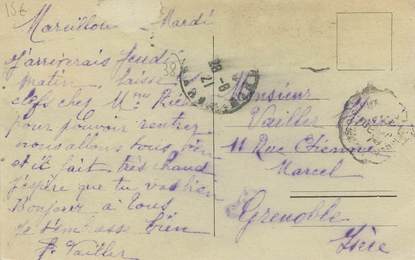 156
Marsillon Mardi
J'arriverais Jeudi
matin, laisse
clefs chez Mme
pour pouvoir rentrer
nous allons tous bien
et il fait très chaud
J'espère que tu vas bien
Bonjour à tous
Je t'embrasse bien
P. Vailler
28-6
21
Monsieur
Vailler
11 Rue Etienne
Marcel
Grenoble
Isère